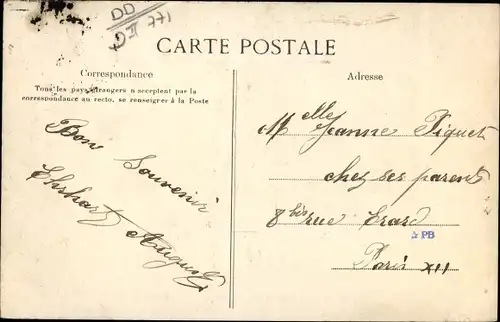 DD
DII 771
CARTE POSTALE
Correspondance
Tous les pays étrangers n'acceptent pas la
correspondance au recto, se renseigner à la Poste
Adresse
Bon
Souvenir
Ehrhart
August
Melle Jeanne Piquet
chez ses parents
8 bis rue Erard
PB
Paris XII